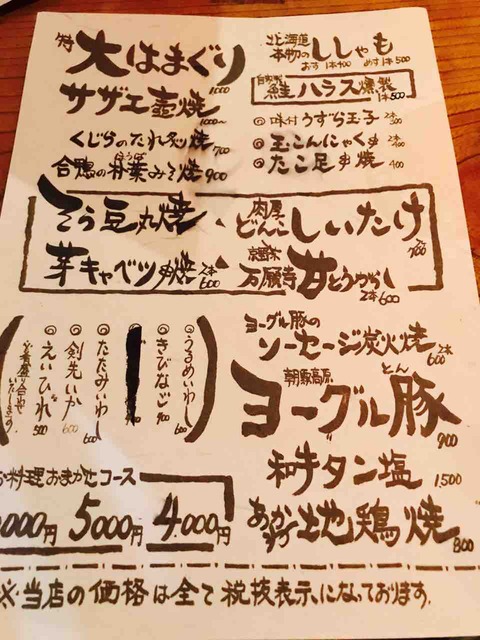 特大はまぐり 1000
サザエ壺焼 1000~
くじらのたれ炙り焼 700
合鴨の朴葉みそ焼 900
北海道本物のししゃも
おす 1本400 めす 1本500
自家製 鮭ハラス燻製 1本500
味付うずら玉子 2本300
玉こんにゃく串 2本400
たこ足串焼 400
そら豆丸焼
芽キャベツ串焼 2本600
肉厚どんこしいたけ 700
京野菜 万願寺甘とうがらし 2本600
ヨーグル豚のソーセージ炭火焼 2本600
朝霧高原 ヨーグル豚 900
和牛タン塩 1500
地鶏焼 800
うるめいわし 600
きびなご
たたみいわし 600
剣先いか 600
えいひれ 500
料理おまかせコース
000円 5000円 4.000円
※当店の価格は全て税抜表示になっております。